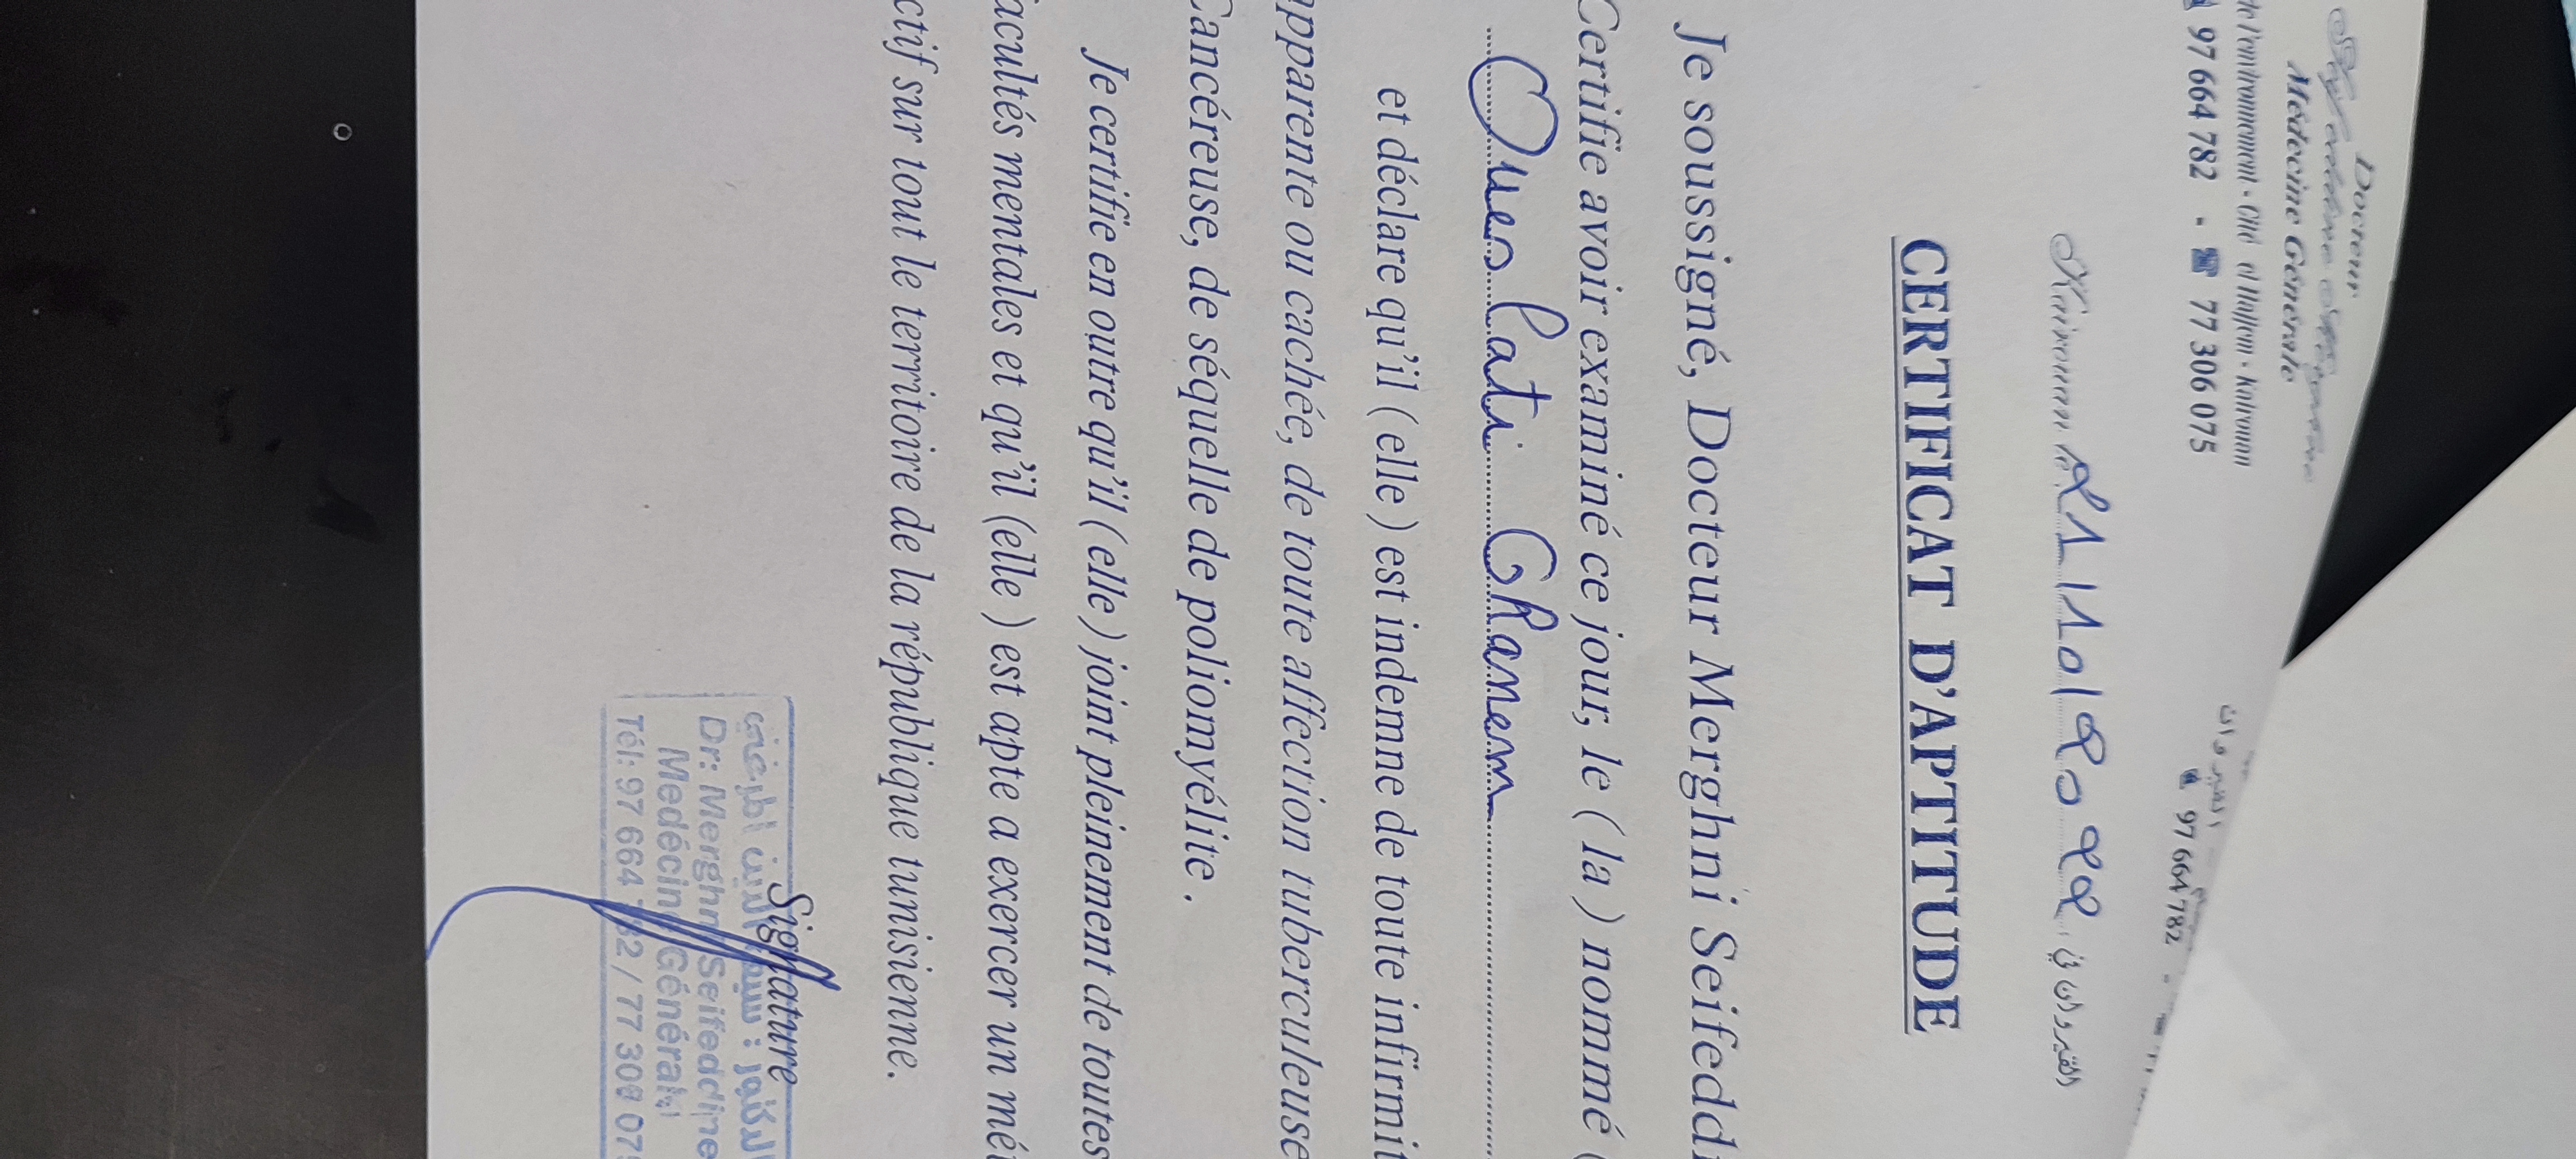 Docteur
Médecine Générale
de l'environnement - Cité el Hajjem - Kairouan
97 664 782 - ☎ 77 306 075
القيروان
97 664 782 -
Kairouan le 21/10/2022 القيروان في
CERTIFICAT D'APTITUDE
Je soussigné, Docteur Merghni Seifeddi
Certifie avoir examiné ce jour, le ( la ) nommé (
Oueslati Ghanem
et déclare qu'il ( elle ) est indemne de toute infirmit
apparente ou cachée, de toute affection tuberculeuse
Cancéreuse, de séquelle de poliomyélite .
Je certifie en outre qu'il ( elle ) joint pleinement de toutes
facultés mentales et qu'il (elle ) est apte a exercer un mét
ctif sur tout le territoire de la république tunisienne.
Signature
الدكتور : سيف الدين المرغني
Dr: Merghni Seifeddine
Medécine Générale
Tél: 97 664 782 / 77 306 075